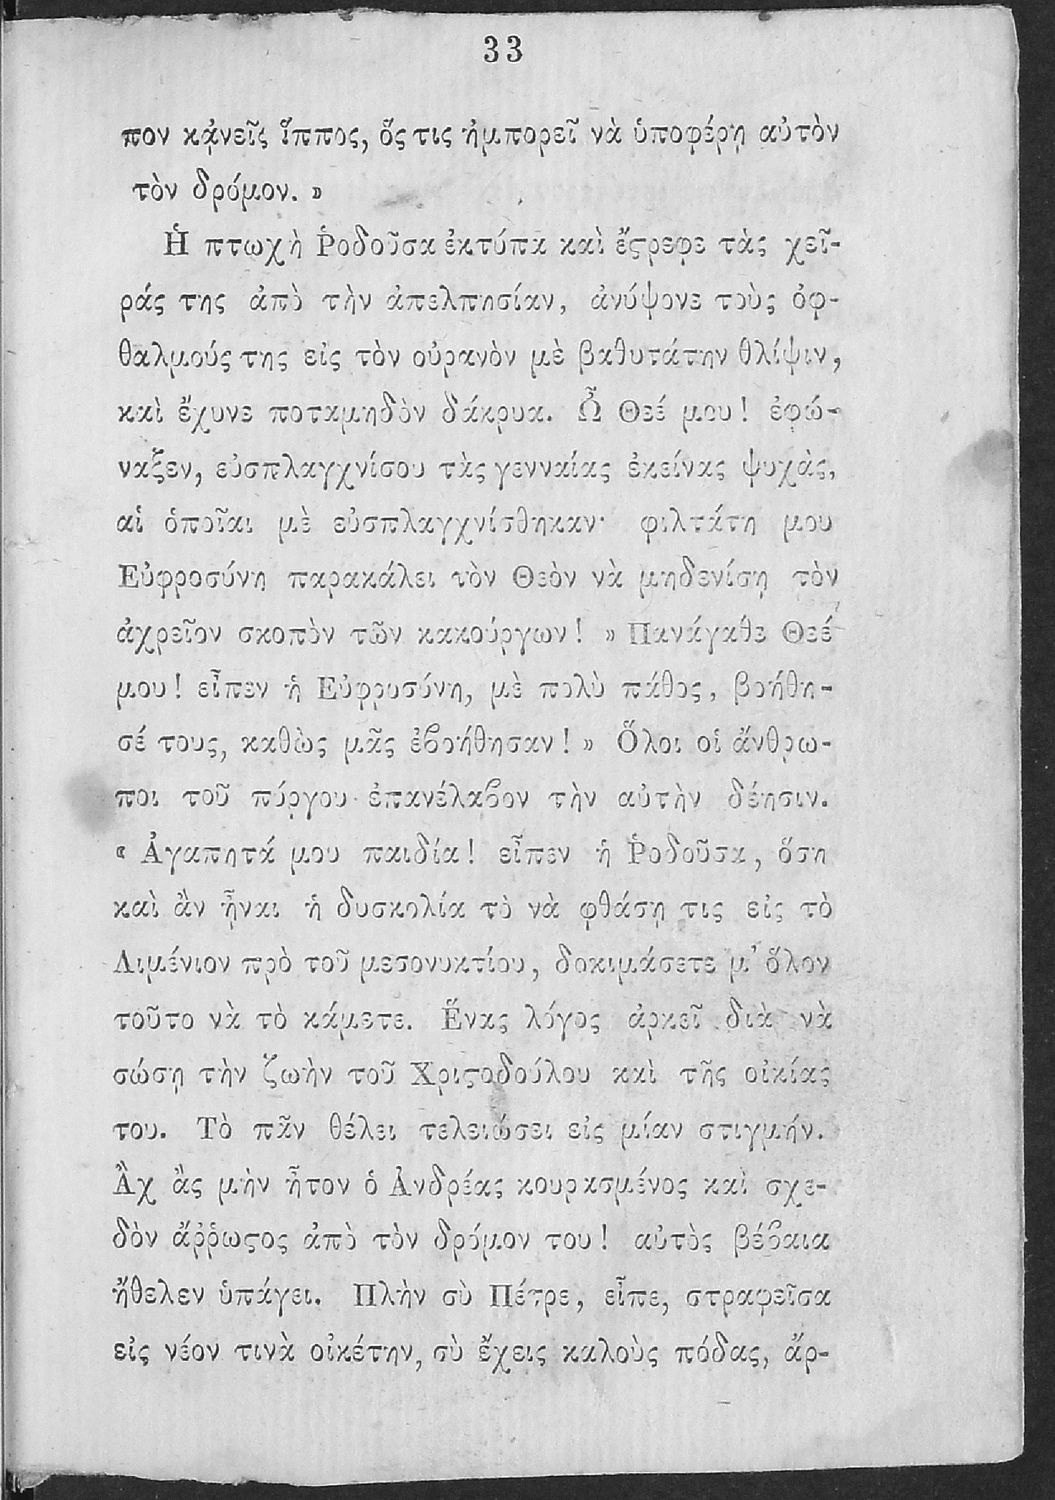 33
πον κᾀνεῖς ἵππος, ὅς τις ἠμπορεῖ νὰ ὑποφέρῃ αὐτὸν
τὸν δρόμον. »
Ἡ πτωχὴ Ῥοδοῦσα ἐκτύπα καὶ ἔϛρεφε τὰς χεῖ-
ράς της ἀπὸ τὴν ἀπελπησίαν, ἀνύψονε τοὺς ὀφ-
θαλμούς της εἰς τὸν οὐρανὸν μὲ βαθυτάτην θλίψιν,
καὶ ἔχυνε ποταμηδὸν δάκρυα. Ὦ Θεέ μου! ἐφώ-
ναξεν, εὐσπλαγχνίσου τὰς γενναίας ἐκείνας ψυχὰς,
αἱ ὁποῖαι μὲ εὐσπλαγχνίσθηκαν· φιλτάτη μου
Εὐφροσύνη παρακάλει τὸν Θεὸν νὰ μηδενίσῃ τὸν
ἀχρεῖον σκοπὸν τῶν κακούργων! » Πανάγαθε Θεέ
μου! εἶπεν ἡ Εὐφροσύνη, μὲ πολὺ πάθος, βοήθη-
σέ τους, καθὼς μᾶς ἐϐοήθησαν! » Ὅλοι οἱ ἄνθρω-
ποι τοῦ πύργου ἐπανέλαϐον τὴν αὐτὴν δέησιν.
« Ἀγαπητά μου παιδία! εἶπεν ἡ Ῥοδοῦσα, ὅση
καὶ ἂν ᾖναι ἡ δυσκολία τὸ νὰ φθάσῃ τις εἰς τὸ
Λιμένιον πρὸ τοῦ μεσονυκτίου, δοκιμάσετε μ' ὅλον
τοῦτο νὰ τὸ κάμετε. Ἕνας λόγος ἀρκεῖ διὰ νὰ
σώσῃ τὴν ζωὴν τοῦ Χριϛοδούλου καὶ τῆς οἰκίας
του. Τὸ πᾶν θέλει τελειώσει εἰς μίαν στιγμήν.
Ἂχ ἂς μὴν ἦτον ὁ Ἀνδρέας κουρασμένος καὶ σχε-
δὸν ἄῤῥωϛος ἀπὸ τὸν δρόμον του! αὐτὸς βέϐαια
ἤθελεν ὑπάγει. Πλὴν σὺ Πέτρε, εἶπε, στραφεῖσα
εἰς νέον τινὰ οἰκέτην, σὺ ἔχεις καλοὺς πόδας, ἄρ-